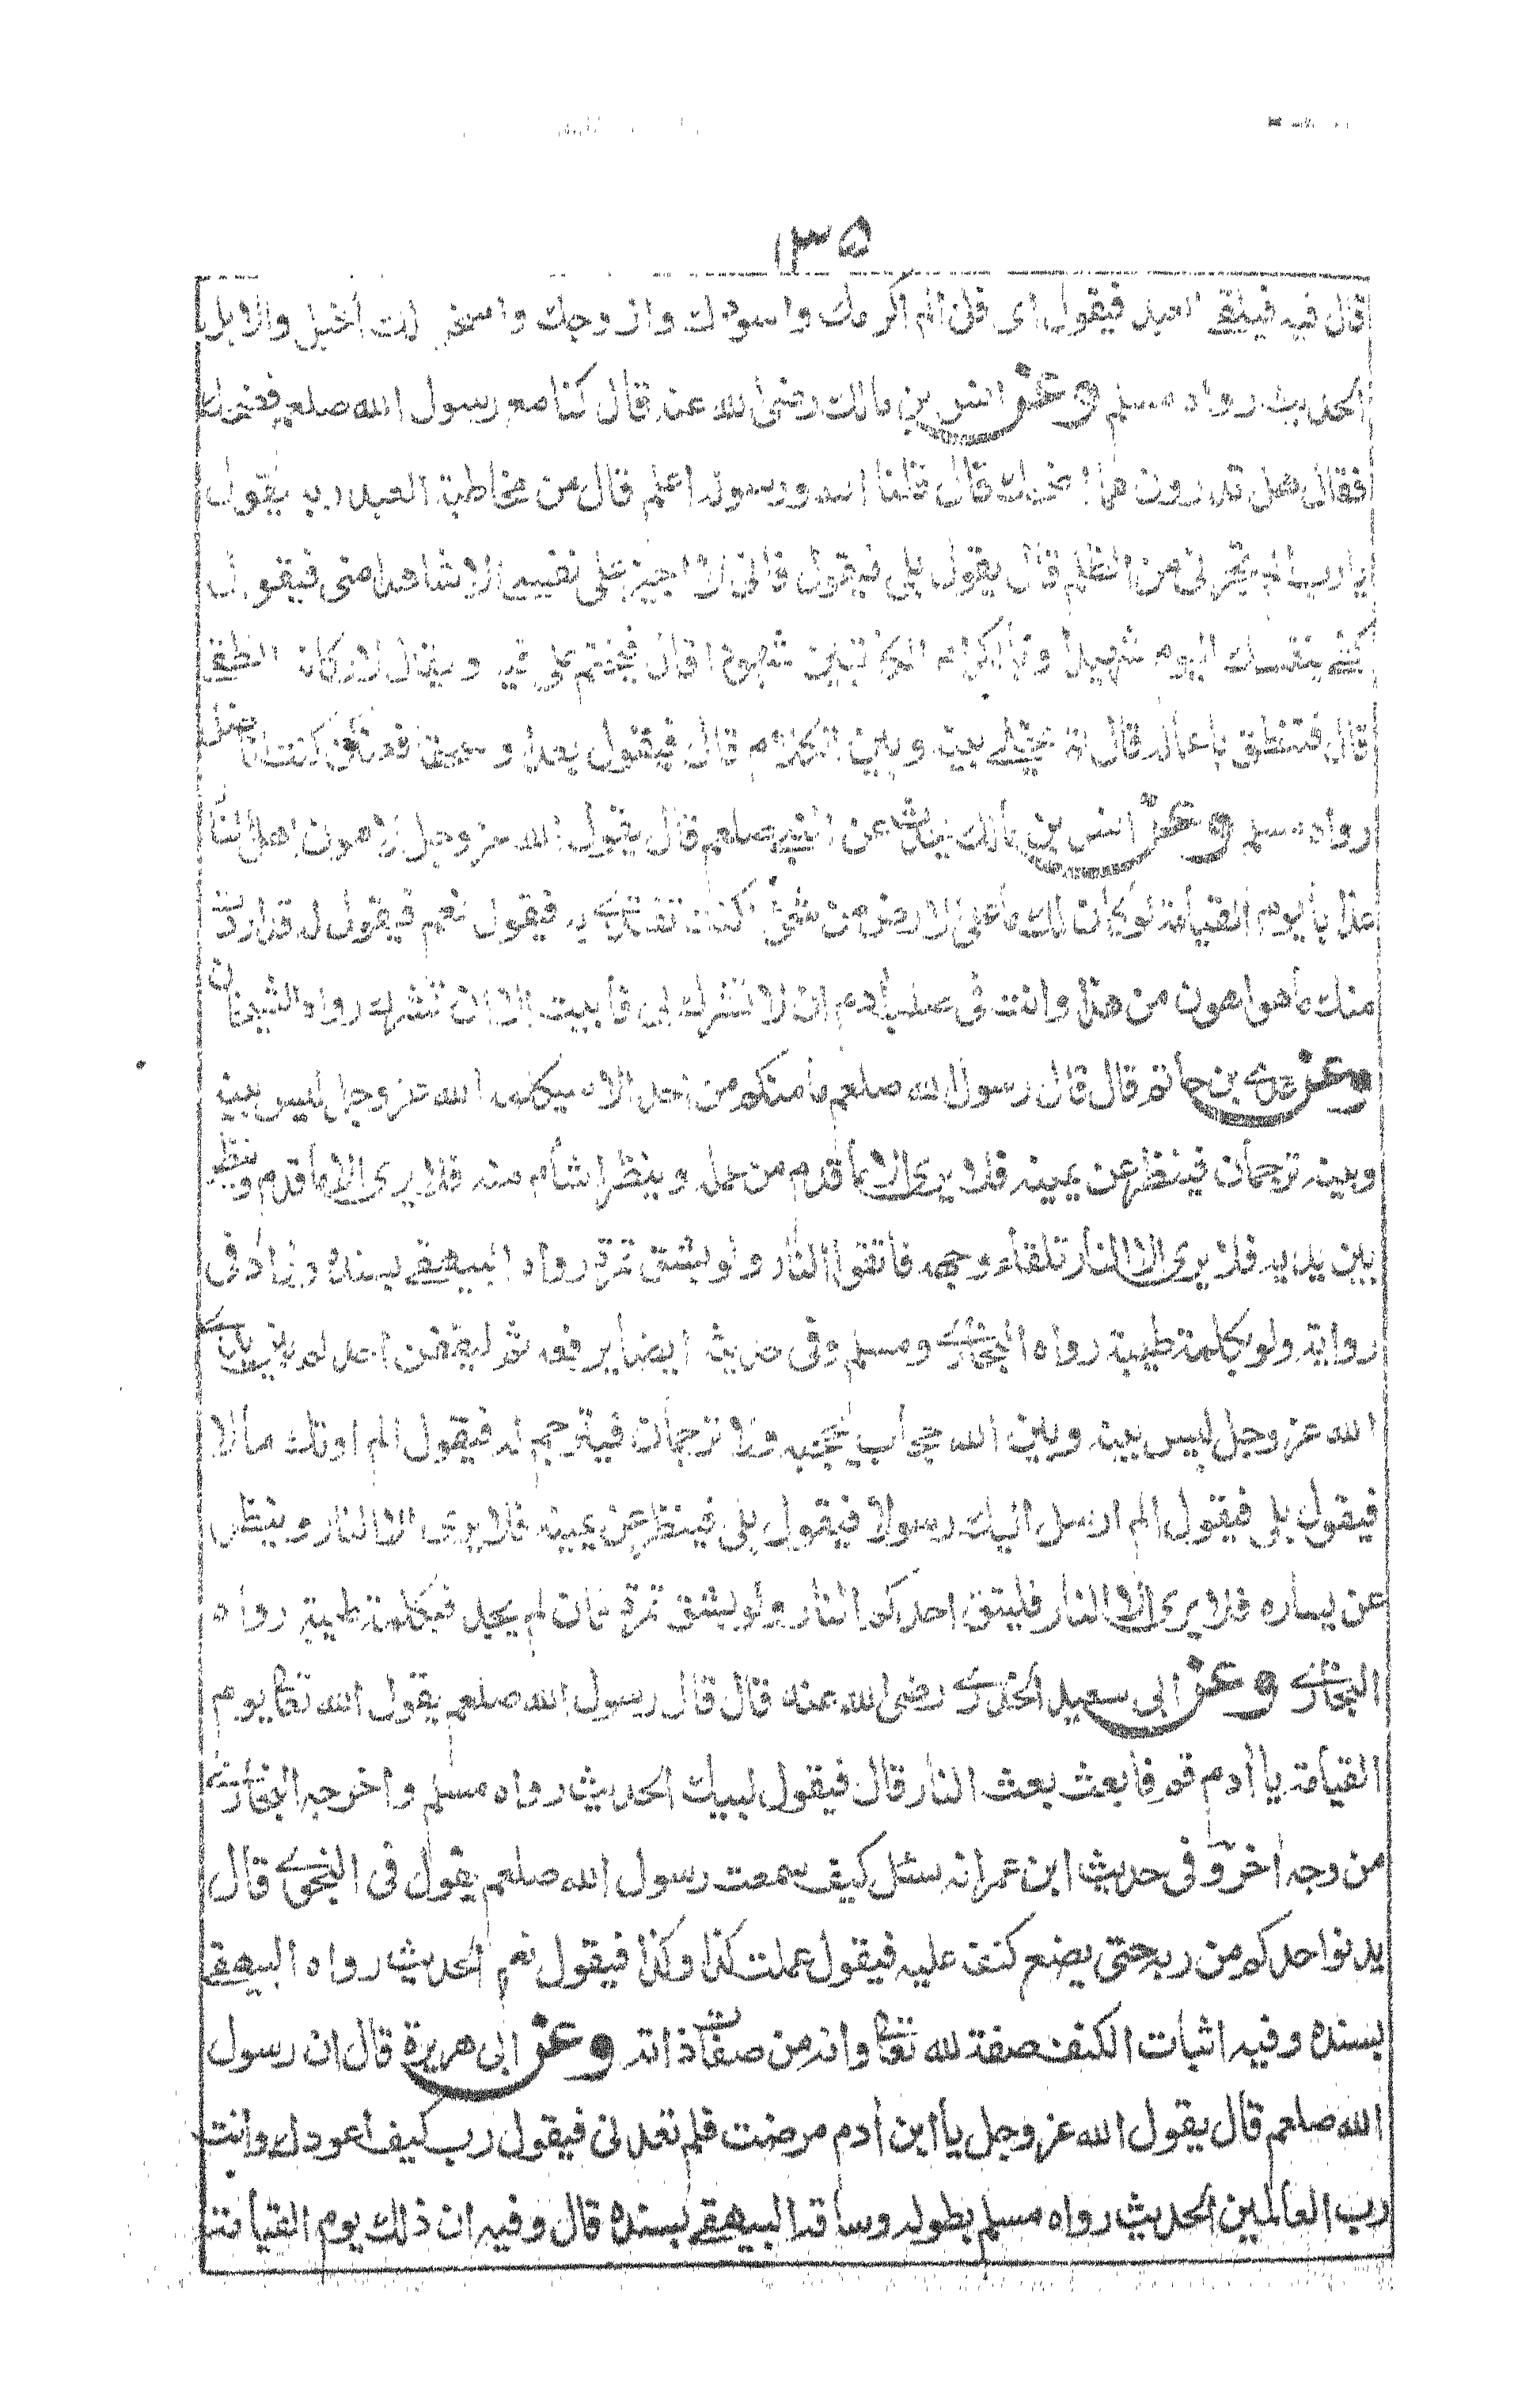 ١٣٥
قال فيه فيلقے العبد فيقول اى فلن الم اكرمك واسودك وازوجك واسخر لك الخيل والابل
الحديث رواه مسلم وعن انس بن مالك رضى الله عنه قال كنا مع رسول الله صلعم فضحك
فقال هل تدرون مما اضحك قال قلنا الله ورسوله اعلم قال من مخاطبة العبد ربه يقول
يا رب الم تجرنى من الظلم قال يقول بلى فيقول فانى لا اجيز على نفسے الا شاهدا منى فيقول
كفے بنفسك اليوم شهيدا وبالكرام الكاتبين شهودا قال فيختم على فيه ويقال لاركانه انطقے
قال فتنطق باعماله قال ثم يخلے بينه وبين الكلام قال فيقول بعدا وسحقا فعنكن كنت اناضل
رواه مسلم وعن انس بن مالك عن النبے صلعم قال يقول الله عز وجل لاهون اهل النار
عذابا يوم القيامة لو كان لك ما على الارض من شئ اكنت تفتدے به فيقول نعم فيقول له قد اردت
منك ما هو اهون من هذا وانت فى صلب ادم ان لا تشرك بى فابيت الا ان تشرك رواه الشيخان
وعن عدے بن حاتم قال قال رسول الله صلعم ما منكم من احد الا سيكلمه الله عز وجل ليس بينه
وبينه ترجمان فينظر عن يمينه فلا يرى الا ما قدم من عمله وينظر اشأم منه فلا يرى الا ما قدم وينظر
بين يديه فلا يرى الا النار تلقاء وجهه فاتقوا النار ولو بشق تمرة رواه البيهقے بسنده وزاد فى
رواية ولو بكلمة طيبة رواه البخارے ومسلم وفى حديث ايضا يرفعه ثم ليقفن احدكم بين يدے
الله عز وجل ليس بينه وبين الله حجاب يحجبه ولا ترجمان فيترجم له فيقول الم اوتك مالا
فيقول بلى فيقول الم ارسل اليك رسولا فيقول بلى فينظر عن يمينه فلا يرى الا النار وينظر
عن يساره فلا يرى الا النار فليتق احدكم النار ولو بشق تمرة فان لم يجد فبكلمة طيبة رواه
البخارے وعن ابى سعيد الخدرے رضى الله عنه قال قال رسول الله صلعم يقول الله تعا يوم
القيامة يا ادم قم فابعث بعث النار قال فيقول لبيك الحديث رواه مسلم واخرجه البخارے
من وجه اخر وفى حديث ابن عمر انه سئل كيف سمعت رسول الله صلعم يقول فى النجوى قال
يدنو احدكم من ربه حتى يضع كنفه عليه فيقول عملت كذا وكذا فيقول نعم الحديث رواه البيهقے
بسنده وفيه اثبات الكنف صفة لله تعا وانه من صفات ذاته وعن ابى هريرة قال ان رسول
الله صلعم قال يقول الله عز وجل يا ابن ادم مرضت فلم تعدنى فيقول رب كيف اعودك وانت
رب العالمين الحديث رواه مسلم بطوله وساقه البيهقے بسنده قال وفيه ان ذلك يوم القيامة